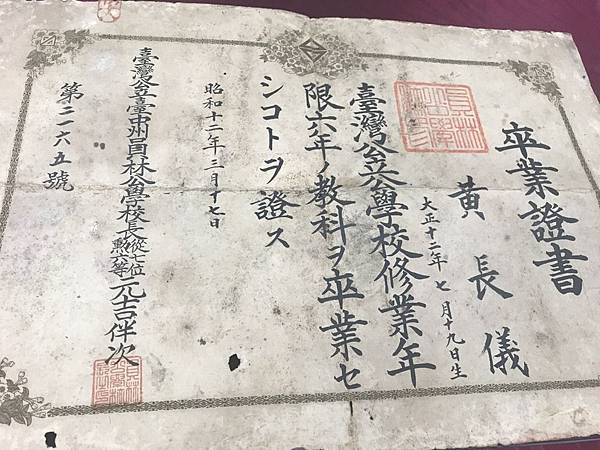 卒業證書
黃長儀
大正十二年七月十九日生
臺灣公立公學校修業年
限六年ノ教科ヲ卒業セ
シコトヲ證ス
昭和十二年三月十七日
臺灣公立臺中州員林公學校長從七位勲六等元吉伴次
第二一六五號